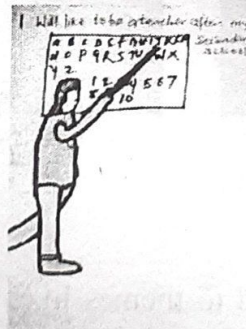 I Will like to be a teacher after my
Secondary
school
A B C D E F
N O P Q R S T U V W X
Y Z
1 2 3 4 5 6 7
8 10